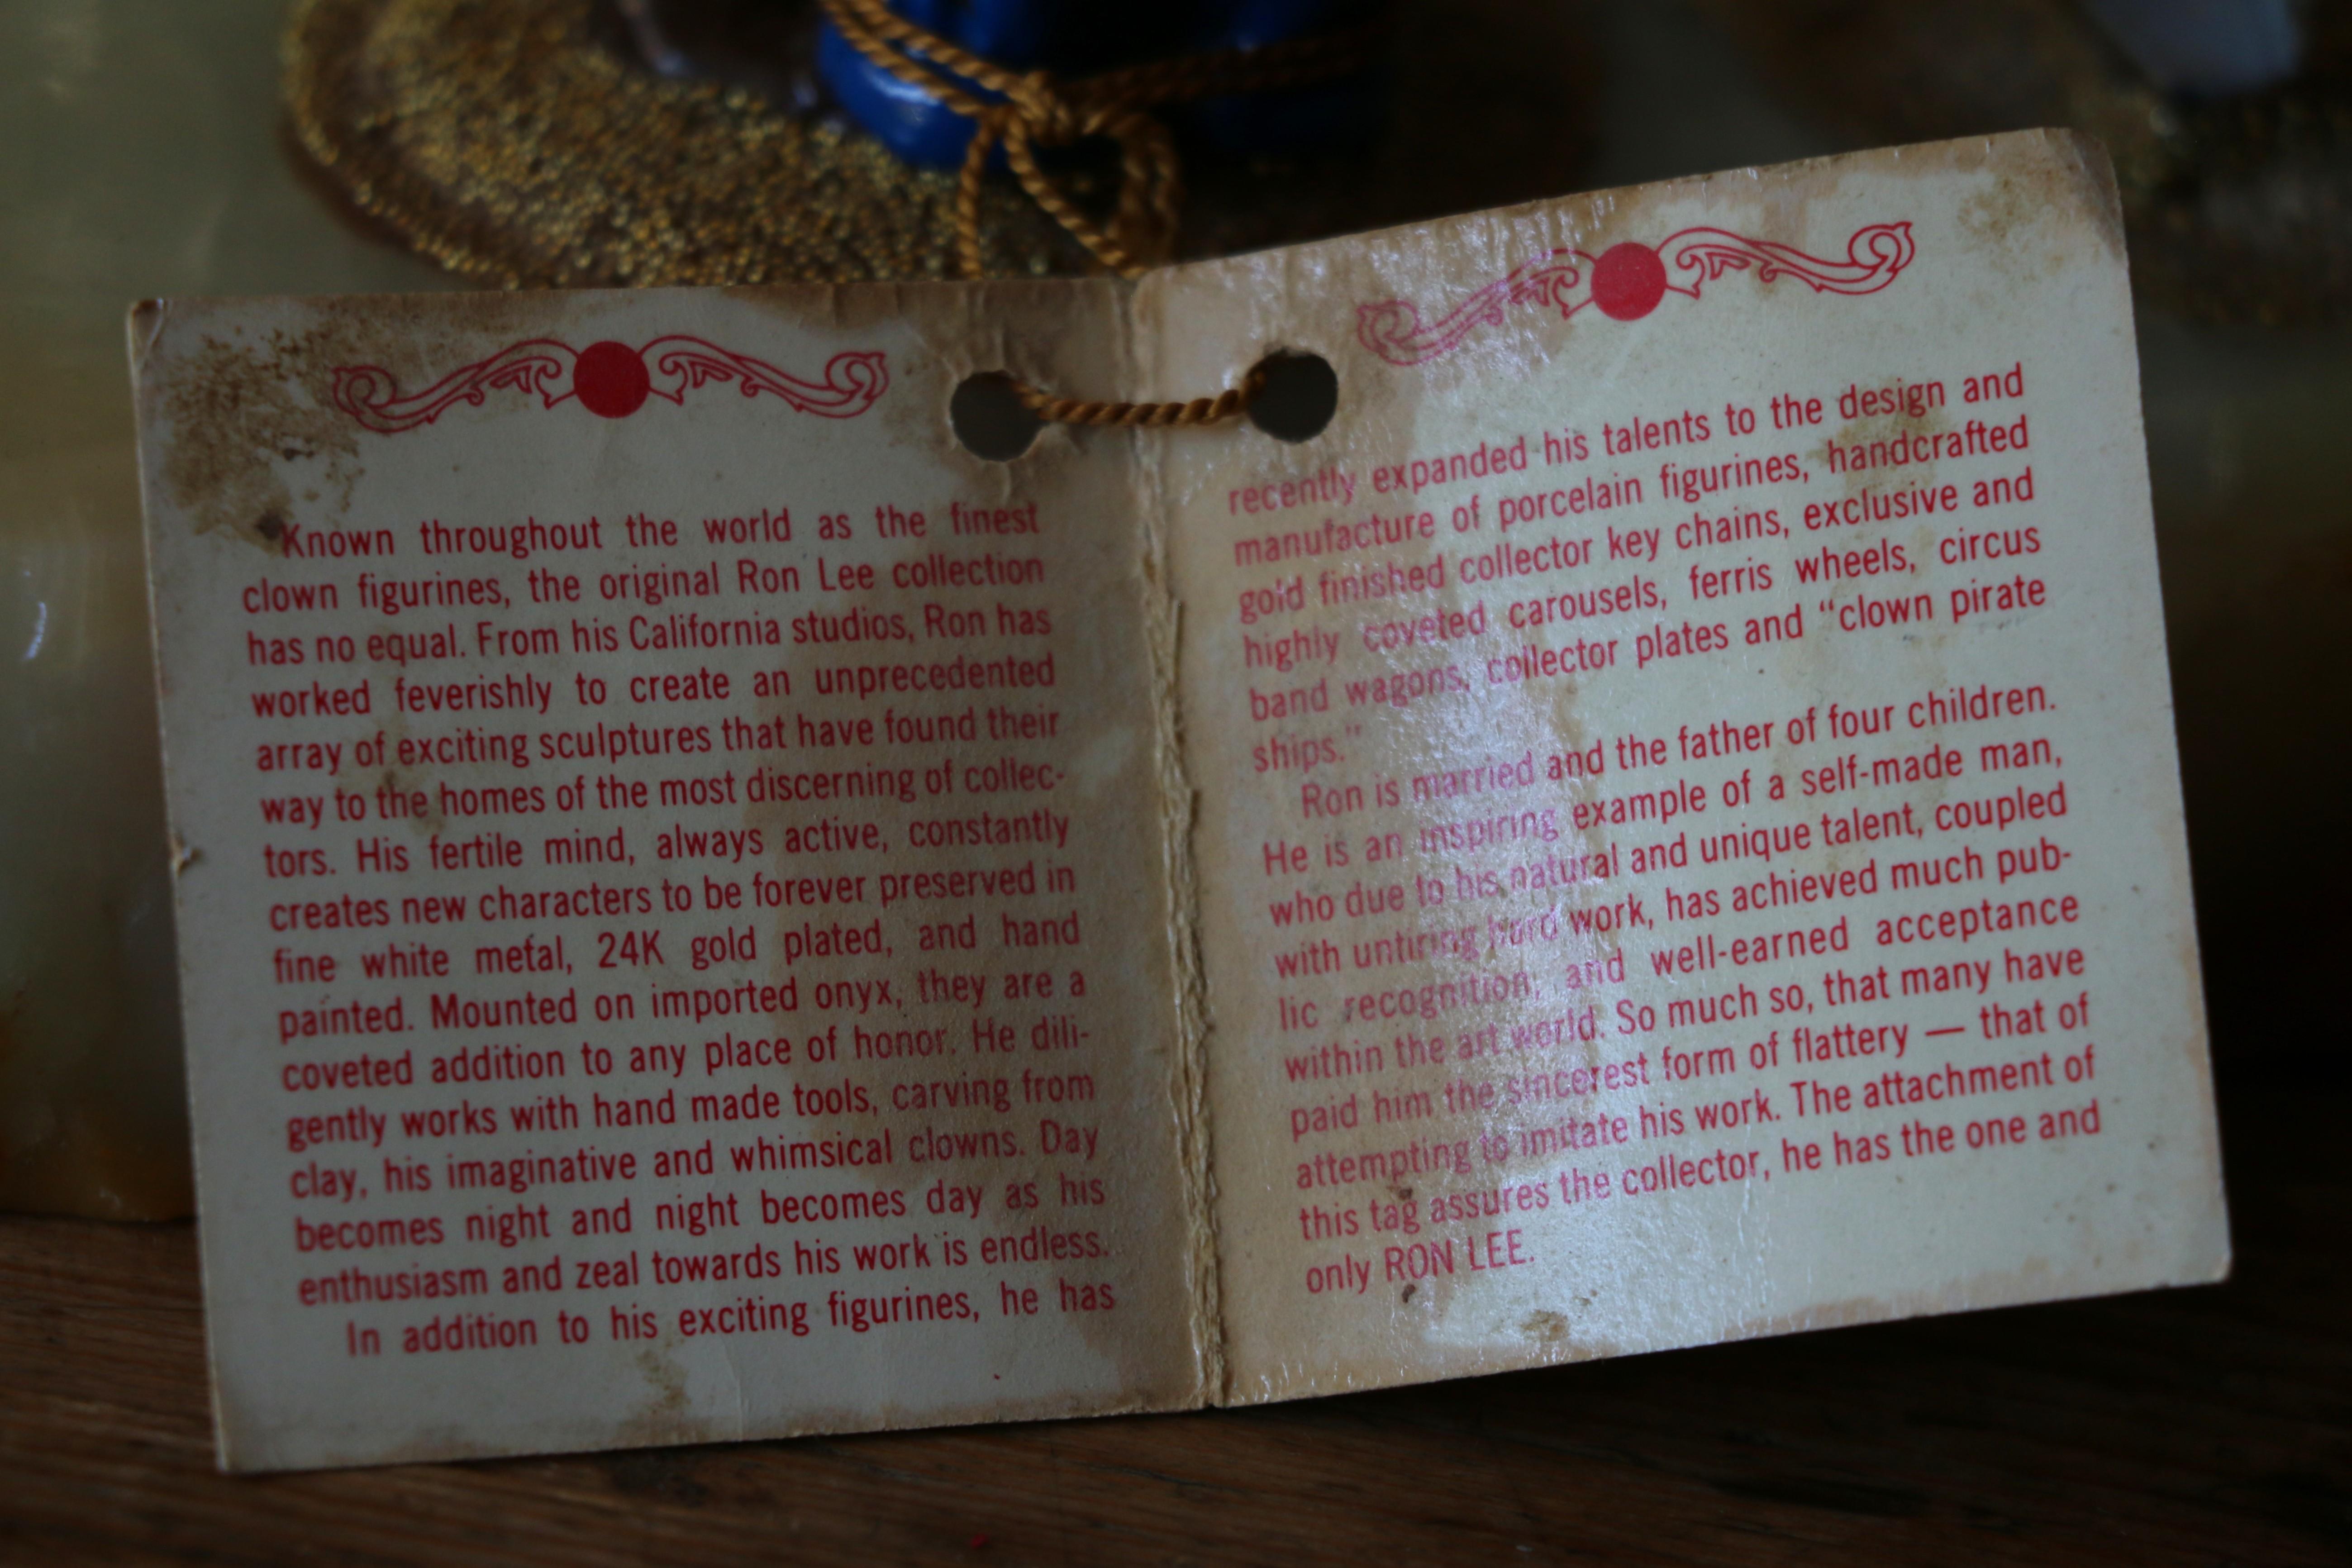 Known throughout the world as the finest
clown figurines, the original Ron Lee collection
has no equal. From his California studios, Ron has
worked feverishly to create an unprecedented
array of exciting sculptures that have found their
way to the homes of the most discerning of collec-
tors. His fertile mind, always active, constantly
creates new characters to be forever preserved in
fine white metal, 24K gold plated, and hand
painted. Mounted on imported onyx, they are a
coveted addition to any place of honor. He dili-
gently works with hand made tools, carving from
clay, his imaginative and whimsical clowns. Day
becomes night and night becomes day as his
enthusiasm and zeal towards his work is endless.
In addition to his exciting figurines, he has
recently expanded his talents to the design and
manufacture of porcelain figurines, handcrafted
gold finished collector key chains, exclusive and
highly coveted carousels, ferris wheels, circus
band wagons, collector plates and “clown pirate
ships.”
Ron is married and the father of four children.
He is an inspiring example of a self-made man,
who due to his natural and unique talent, coupled
with untiring hard work, has achieved much pub-
lic recognition, and well-earned acceptance
within the art world. So much so, that many have
paid him the sincerest form of flattery — that of
attempting to imitate his work. The attachment of
this tag assures the collector, he has the one and
only RON LEE.